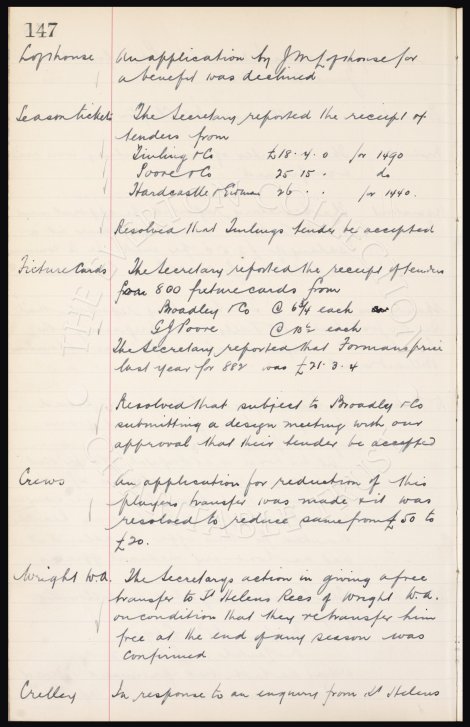 147
Lofthouse An application by J W Lofthouse for
a benefit was declined
Season tickets The Secretary reported the receipt of
tenders from
Tinling & Co £18.4.0 for 1490
Poore & Co 25 15 . do
Hardcastle & 26 . . for 1440.
Resolved that Tinlings tender be accepted
Fixture Cards The Secretary reported the receipt of tenders
for 800 fixture cards from
Broadley & Co @ each
G J Poore @ each
The Secretary reported that Formans price
last year for 882 was £21.3.4
Resolved that subject to Broadley & Co
submitting a design meeting with our
approval that their tender be accepted
Crews An application for reduction of this
players transfer was made & it was
resolved to reduce same from £50 to
£20.
Wright W.A. The Secretarys action in giving a free
transfer to St Helens Recs of Wright W.A.
on condition that they retransfer him
free at the end of any season was
confirmed
Crelley In response to an enquiry from St Helens